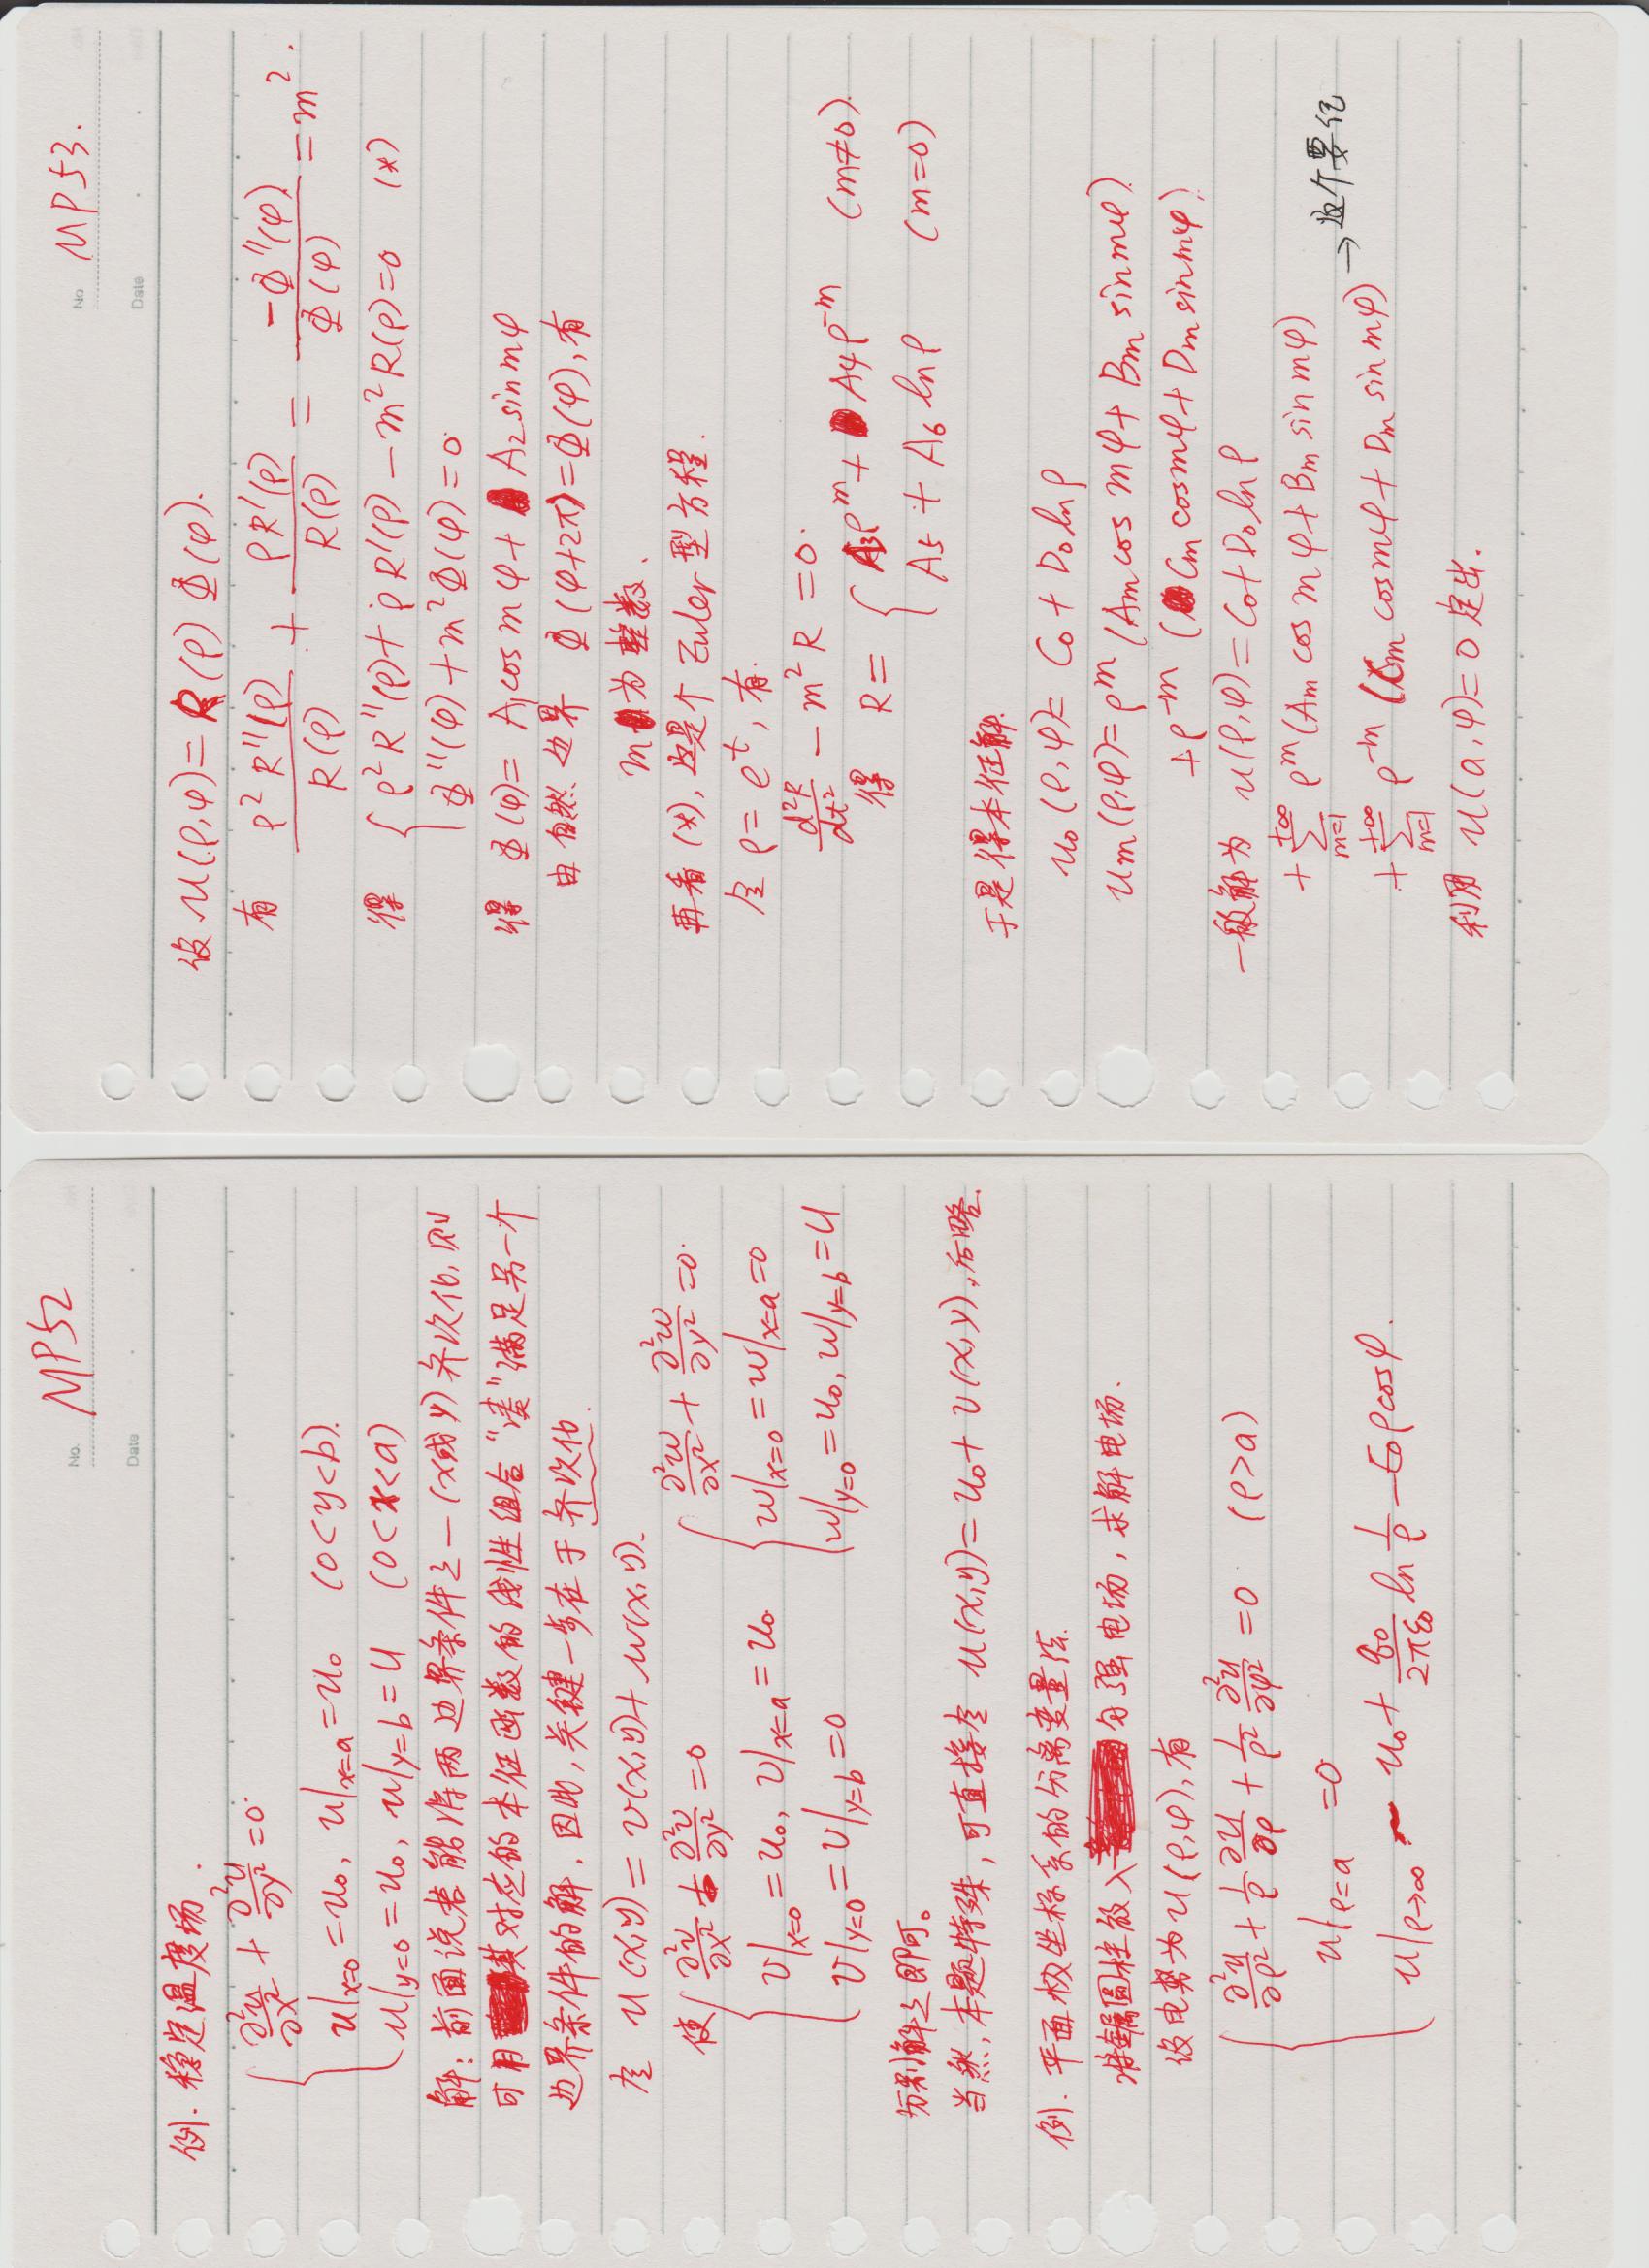 No. MP52
Date
例. 稳定温度场.
∂²u/∂x² + ∂²u/∂y² = 0.
u|x=0 = u₀, u|x=a = u₀ (0<y<b).
u|y=0 = u₀, u|y=b = U (0<x<a)
解: 前面说若能将两边界条件之一(x或y)齐次化, 则
可用其对应的本征函数的线性组合“凑”满足另一个
边界条件的解. 因此, 关键一步在于齐次化.
令 u(x,y) = v(x,y) + w(x,y).
使 { ∂²v/∂x² + ∂²v/∂y² = 0 { ∂²w/∂x² + ∂²w/∂y² = 0.
v|x=0 = u₀, v|x=a = u₀. w|x=0 = w|x=a = 0
v|y=0 = v|y=b = 0 w|y=0 = u₀, w|y=b = U
分别解之即可。
当然, 本题特殊, 可直接令 u(x,y) = u₀ + v(x,y), 后略.
例. 平面极坐标系的分离变量法.
将金属圆柱放入匀强电场, 求解电场.
设电势为 u(ρ,φ), 有
∂²u/∂ρ² + 1/ρ ∂u/∂ρ + 1/ρ² ∂²u/∂φ² = 0 (ρ>a)
u|ρ=a = 0
u|ρ→∞ ~ u₀ + q₀/2πε₀ ln 1/ρ − E₀ρcosφ.
No MP53.
Date
设 u(ρ,φ) = R(ρ) Φ(φ).
有 ρ²R''(ρ)/R(ρ) + ρR'(ρ)/R(ρ) = −Φ''(φ)/Φ(φ) = m².
得 { ρ²R''(ρ) + ρR'(ρ) − m²R(ρ) = 0 (*)
Φ''(φ) + m²Φ(φ) = 0
得 Φ(φ) = A₁cos mφ + A₂ sin mφ
由自然边界 Φ(φ+2π) = Φ(φ), 有
m 为整数.
再看 (*), 这是个 Euler 型方程.
令 ρ = e^t, 有.
d²R/dt² − m²R = 0.
得 R = { A₃ρ^m + A₄ρ^-m (m≠0).
A₅ + A₆ lnρ (m=0)
于是得本征解.
u₀(ρ,φ) = C₀ + D₀ lnρ
u_m(ρ,φ) = ρ^m (A_m cos mφ + B_m sin mφ)
+ρ^-m (C_m cos mφ + D_m sin mφ)
一般解为 u(ρ,φ) = C₀ + D₀ lnρ
+ Σ_{m=1}^{+∞} ρ^m (A_m cos mφ + B_m sin mφ)
+ Σ_{m=1}^{+∞} ρ^-m (C_m cos mφ + D_m sin mφ) → 这个要记
利用 u(a,φ) = 0 定出.